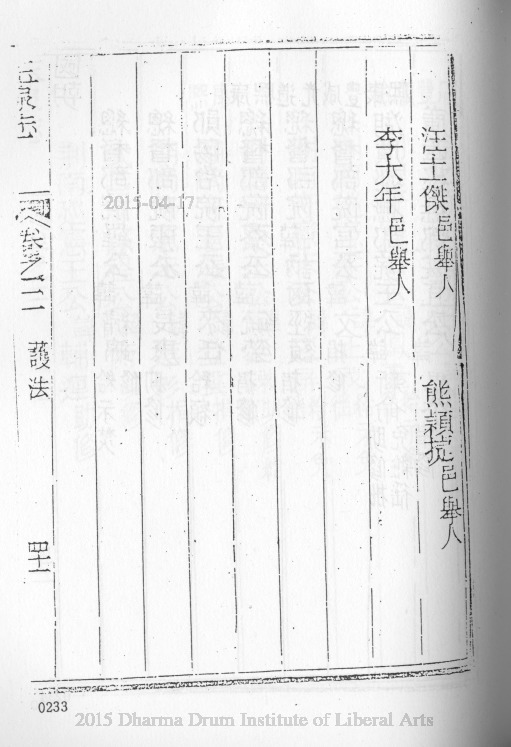 汪士傑邑舉人
熊穎㨗邑舉人
李大年邑舉人
玉泉志
卷之三
護法
四十一
2015-04-17
0233
2015 Dharma Drum Institute of Liberal Arts